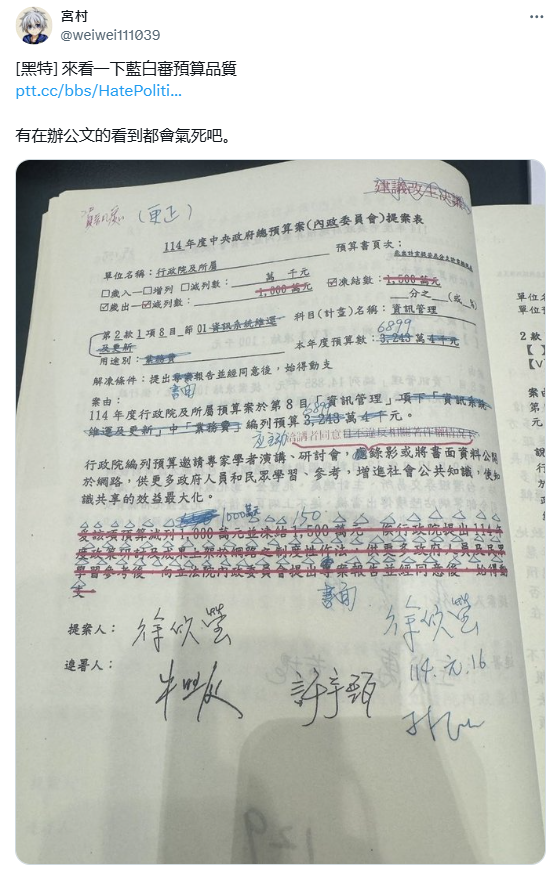 宮村
@weiwei111039
[黑特] 來看一下藍白審預算品質
ptt.cc/bbs/HatePoliti...
有在辦公文的看到都會氣死吧。
建議改主決議
(更正)
114年度中央政府總預算案(內政委員會)提案表
預算書頁次：
單位名稱：行政院及所屬
□歲入—□增列 □減列數： 萬 千元
☑歲出—☑減列數： 1,000 萬元
☑凍結數：1,500 萬元
分之 (或 %)
第2款1項8目 節01 資訊系統維運及更新
科目(計畫)名稱：資訊管理
6899
用途別：業務費
本年度預算數：3,243萬4千元
解凍條件：提出專案報告並經同意後，始得動支
書面
案由：
6899
114年度行政院及所屬預算案於第8目「資訊管理」項下「資訊系統
維運及更新」中「業務費」編列預算3,243萬4千元。
應主動
行政院編列預算邀請專家學者演講、研討會，錄影或將書面資料公開
於網路，供更多政府人員和民眾學習、參考，增進社會公共知識，使知
識共享的效益最大化。
1000萬 150
爰該項預算減列1,000萬元並凍結1,500萬元，俟行政院提出114年
學習參考後，向立法院內政委員會提出專案報告並經同意後，始得動
支
書面
提案人： 徐欣瑩 徐欣瑩
114.元.16
連署人： 牛煦庭 許宇甄